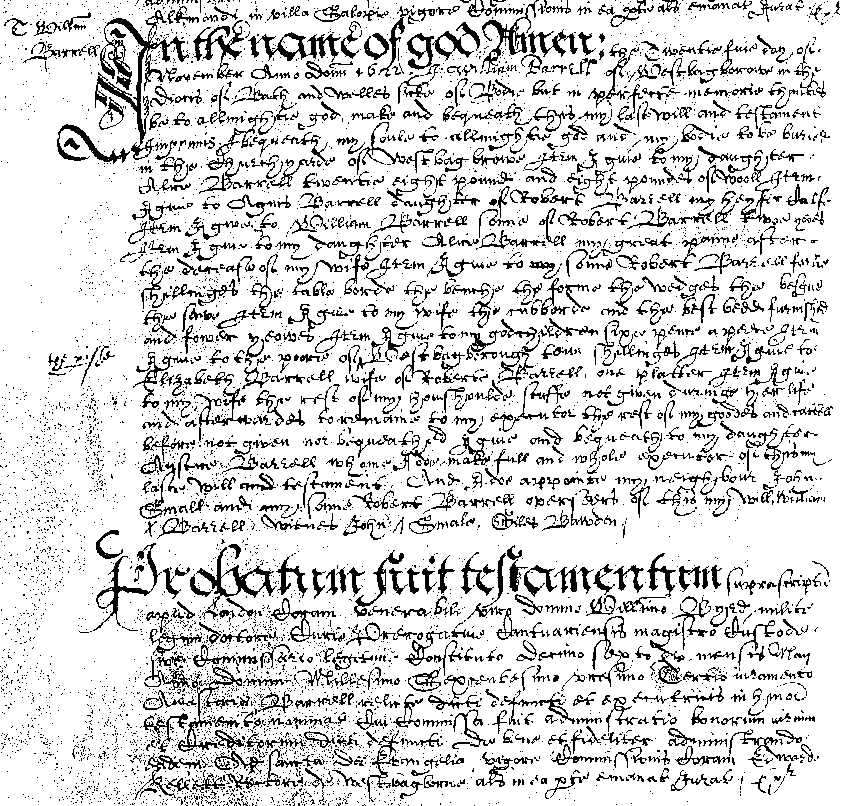 T Willm
Barrell
In the name of god Amen: the Twentie fuie day of
November Anno dom 162 I William Barrell of Westbagborowe in the
dioces of Bath and Welles sicke of Bodie but in perfecte memorie thankes
be to allmightie god make and bequeath this my last will and testament
Imprimis I bequeath my soule to allmightie god and my bodie to be buried
in the Churchyarde of Westbagbrowe Item I giue to my daughter
Alice Barrell twentie eight pounds and eight poundes of wooll Item
I giue to Agnis Barrell daughter of Robert Barrell my heyfer Calfe
Item I giue to William Barrell sonne of Robert Barrell twoe yeoes
Item I giue to my daughter Alice Barrell my great panne after
the decease of my wife Item I giue to my sonne Robert Barrell fortie
shillinges the table borde the benche the forme the wedges the
the sawe Item I giue to my wife the cubborde and the best bedd furnished
and fower yeowes Item I giue to my godchildren sixe pence a peece Item
I giue to the poore of Westbagborough tenn shillinges Item I giue to
Elizabeth Barrell wife of Roberte Barrell one platter Item I giue
to my wife the rest of my houshoulde stuffe not given duringe her life
and afterwardes to remaine to my executor the rest of my goodes and cattell
before not given nor bequeathed I giue and bequeath to my daughter
Barrell whome I doe make full and whole executor of this my
laste will and testament And I doe appointe my neighbour John
Small and my sonne Robert Barrell overseers of this my will William
Barrell witnes John Smale, Giles Bawden
Probatum fuit testamentum suprascriptu
apud London Coram venerabili viro domino Willimo Byrd milite
legum doctore Curie Prerogative Cantuariensis magistro Custode
sive Comissario legitime Constituto decimo sexto die mensis Maii
Anno domini Millesimo Sexcentesimo vicesimo Tertio iuramento
Barrell relicte dicti defuncti et executricis in hmoi
testamento nominat Cui Commissa fuit administratio bonorum iurium
et Creditorum dicti defuncti De bene et fideliter administrando
eadem Ad sancta dei Evangelia vigore Commissionis Coram Edwardo
Rectore de Westbagborne als in ea parte emanat Jurat